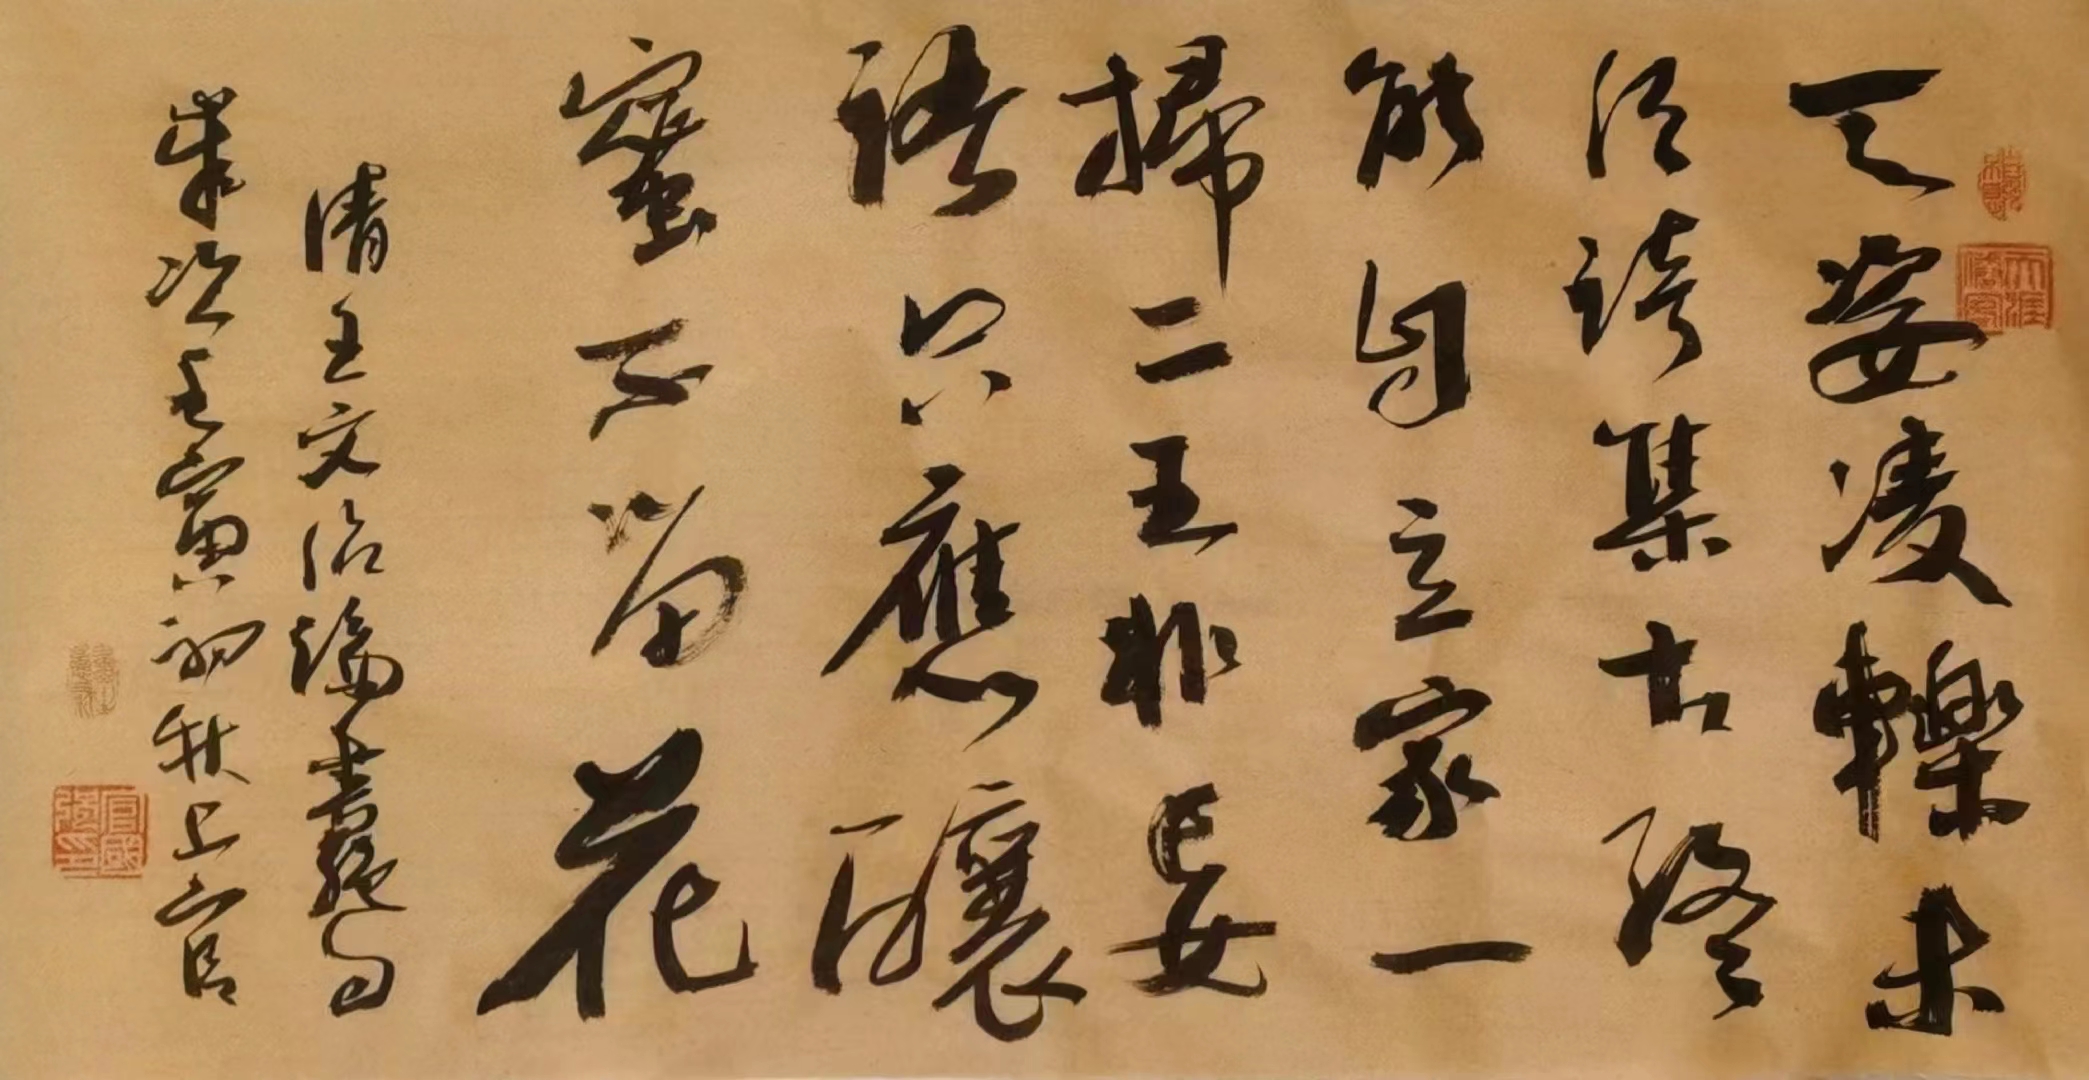 天姿凌轢未
須誇集古終
能自立家一
掃二王非妄
語只應釀
蜜不留花
清王文治論書絕句
歲次壬寅初秋上官